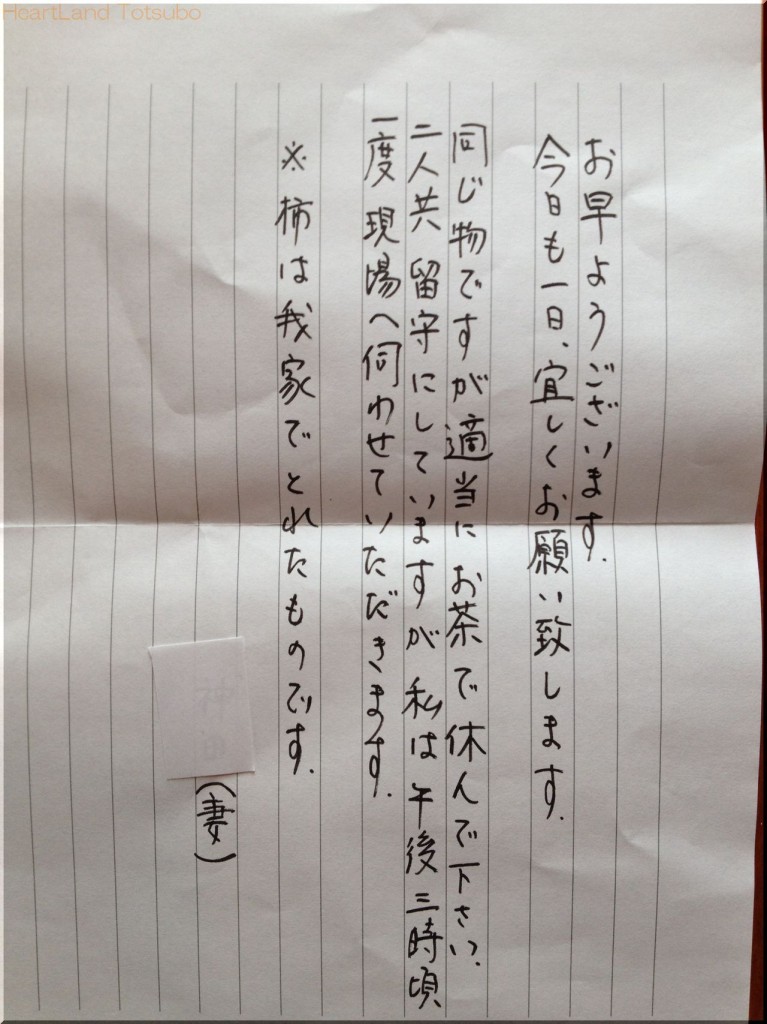 HeartLand Totsubo
お早ようございます.
今日も一日、宜しくお願い致します.
同じ物ですが適当にお茶で休んで下さい.
二人共留守にしていますが私は午後三時頃
一度現場へ伺わせていただきます.
※柿は我家でとれたものです.
(妻)